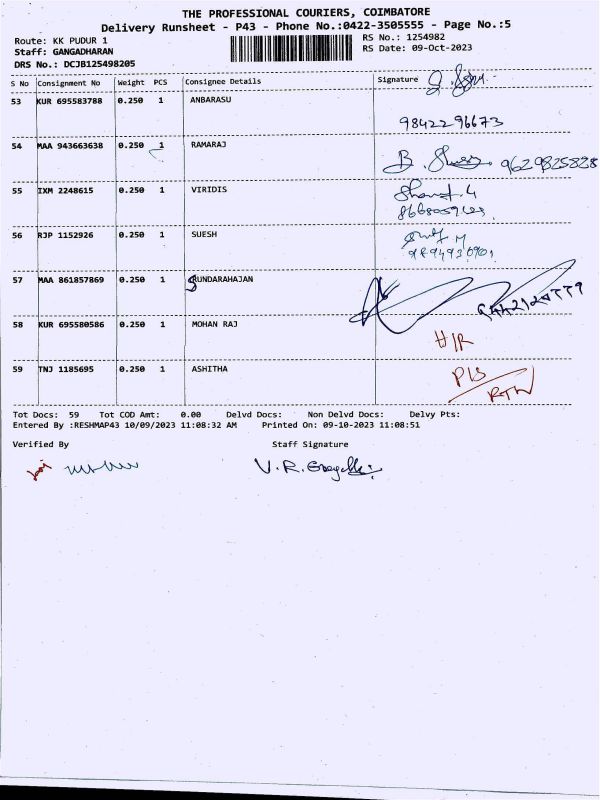 THE PROFESSIONAL COURIERS, COIMBATORE
Delivery Runsheet - P43 - Phone No.:0422-3505555 - Page No.:5
Route: KK PUDUR 1
RS No.: 1254982
Staff: GANGADHARAN
RS Date: 09-Oct-2023
DRS No.: DCJB125498205
S No Consignment No Weight PCS Consignee Details Signature
53 KUR 695583788 0.250 1 ANBARASU
9842296673
54 MAA 943663638 0.250 1 RAMARAJ
9629825828
55 IXM 2248615 0.250 1 VIRIDIS
56 RJP 1152926 0.250 1 SUESH
57 MAA 861857869 0.250 1 SUNDARAHAJAN
58 KUR 695580586 0.250 1 MOHAN RAJ
H/R
59 TNJ 1185695 0.250 1 ASHITHA
RTN
Tot Docs: 59 Tot COD Amt: 0.00 Delvd Docs: Non Delvd Docs: Delvy Pts:
Entered By :RESHMAP43 10/09/2023 11:08:32 AM Printed On: 09-10-2023 11:08:51
Verified By Staff Signature